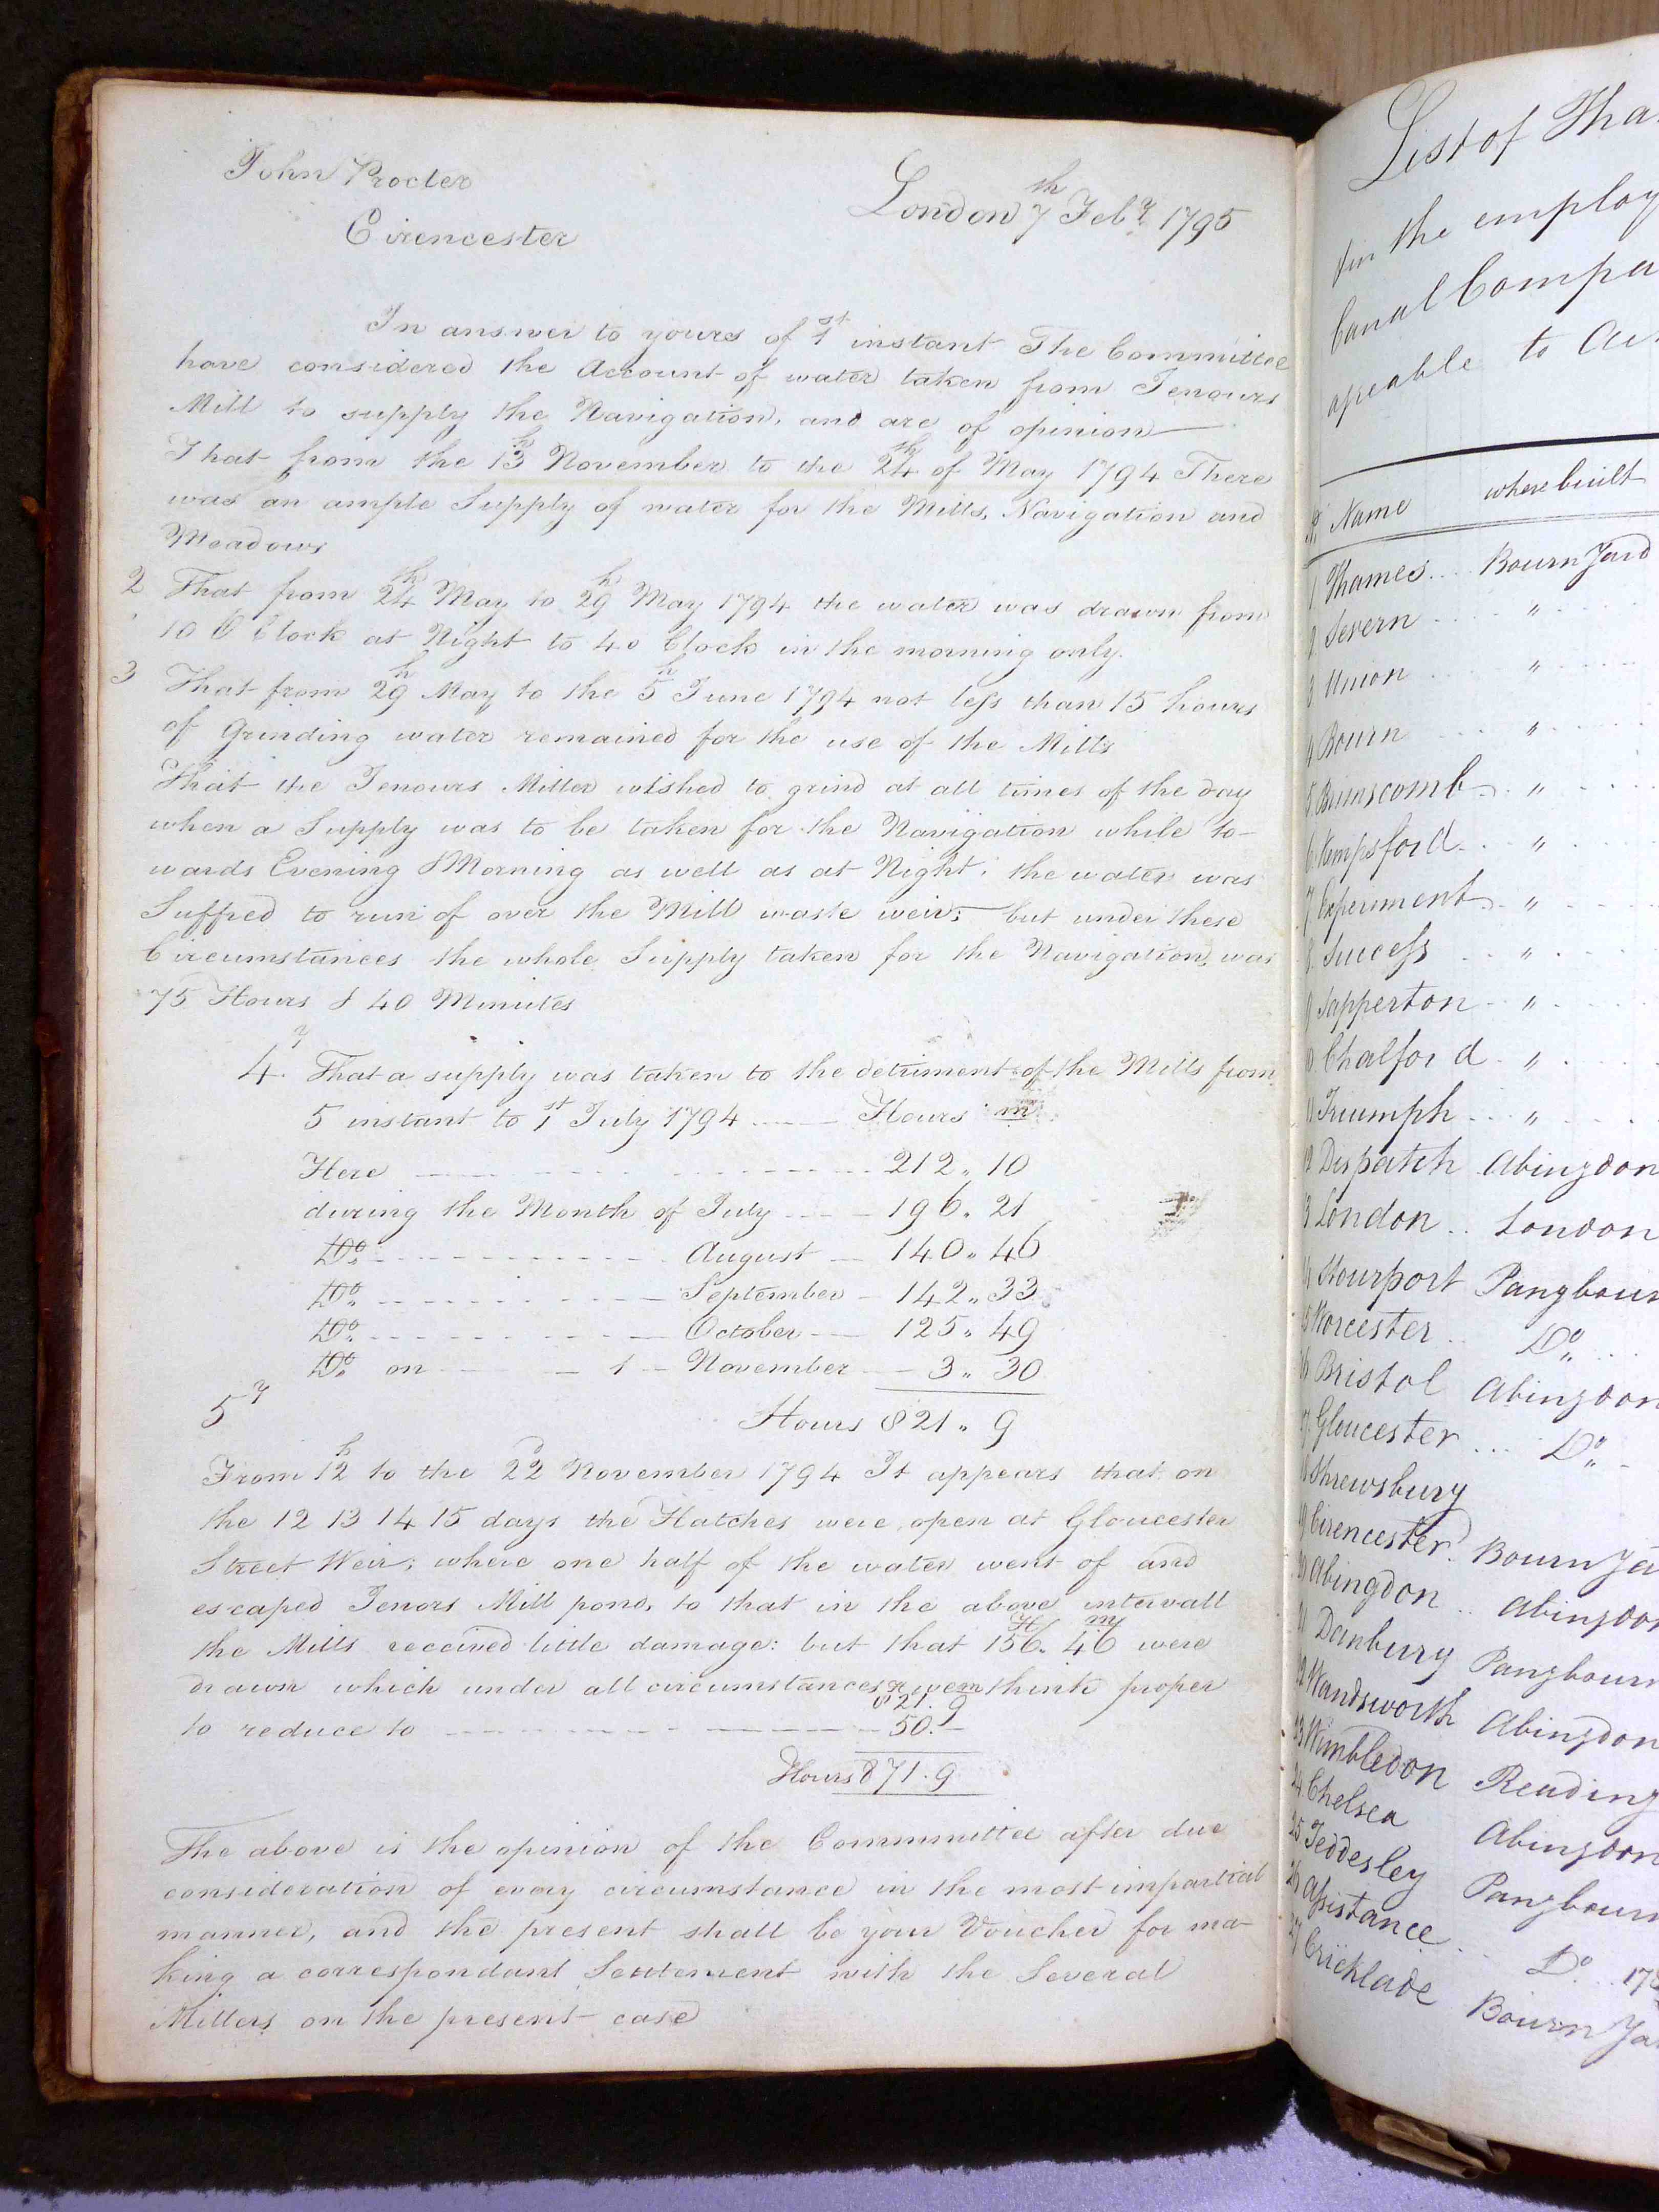 John Procter
Cirencester
London 7th Feby. 1795
In answer to yours of 1st instant The Committee
have considered the Account of water taken from Tenours
Mill to supply the Navigation, and are of opinion
That from the 13h November to the 24th of May 1794 There
was an ample Supply of water for the Mills, Navigation and
Meadows
2 That from 24th May to 29h May 1794 the water was drawn from
10 O Clock at Night to 4 o Clock in the morning only.
3 That from 29h May to the 5h June 1794 not less than 15 hours
of Grinding water remained for the use of the Mills
That the Tenours Miller wished to grind at all times of the day
when a Supply was to be taken for the Navigation while to-
wards Evening & Morning as well as at Night, the water was
Suffred to run of over the Mill waste weir; but under these
Circumstances the whole Supply taken for the Navigation, was
75 Hours & 40 Minutes
4.y That a supply was taken to the detriment of the Mills from
5 instant to 1st July 1794 Hours m
Here 212 " 10
during the Month of July 196 " 21
Do. August 140 " 46
Do. September 142 " 33
Do. October 125 " 49
Do. on 1 November 3 " 30
5y Hours 821 " 9
From 12h to the 22d November 1794 It appears that on
the 12 13 14 15 days the Hatches were open at Gloucester
Street Weir; where one half of the water went of and
escaped Tenors Mill pond, to that in the above intervall
the Mills received little damage: but that 156H. 46m were
drawn which under all circumstances we think proper
821. 9
to reduce to 50. -
Hours 871. 9
The above is the opinion of the Committee after due
consideration of every circumstance in the most impartial
manner, and the present shall be your Voucher for ma-
king a correspondant Settlement with the Several
Millers on the present case
List of Tha
in the employ
Canal Compa
apeable to
No. Name where built
1 Thames Bourn Yard
2 Severn "
3 Union "
4 Bourn "
5 Brimscomb "
6 Kempsford "
7 Experiment "
8 Success "
9 Sapperton "
10 Chalford "
11 Triumph "
12 Dispatch Abingdon
13 London London
14 Stourport Pangbour
15 Worcester Do.
16 Bristol Abingdon
17 Gloucester Do.
18 Shrewsbury
19 Cirencester Bourn Ya
20 Abingdon Abingdon
21 Banbury Pangbourn
22 Wandsworth Abingdon
23 Wimbledon Reading
24 Chelsea Abingdon
25 Teddesley Pangbourn
26 Assistance Do. 17
27 Cricklade Bourn Ya